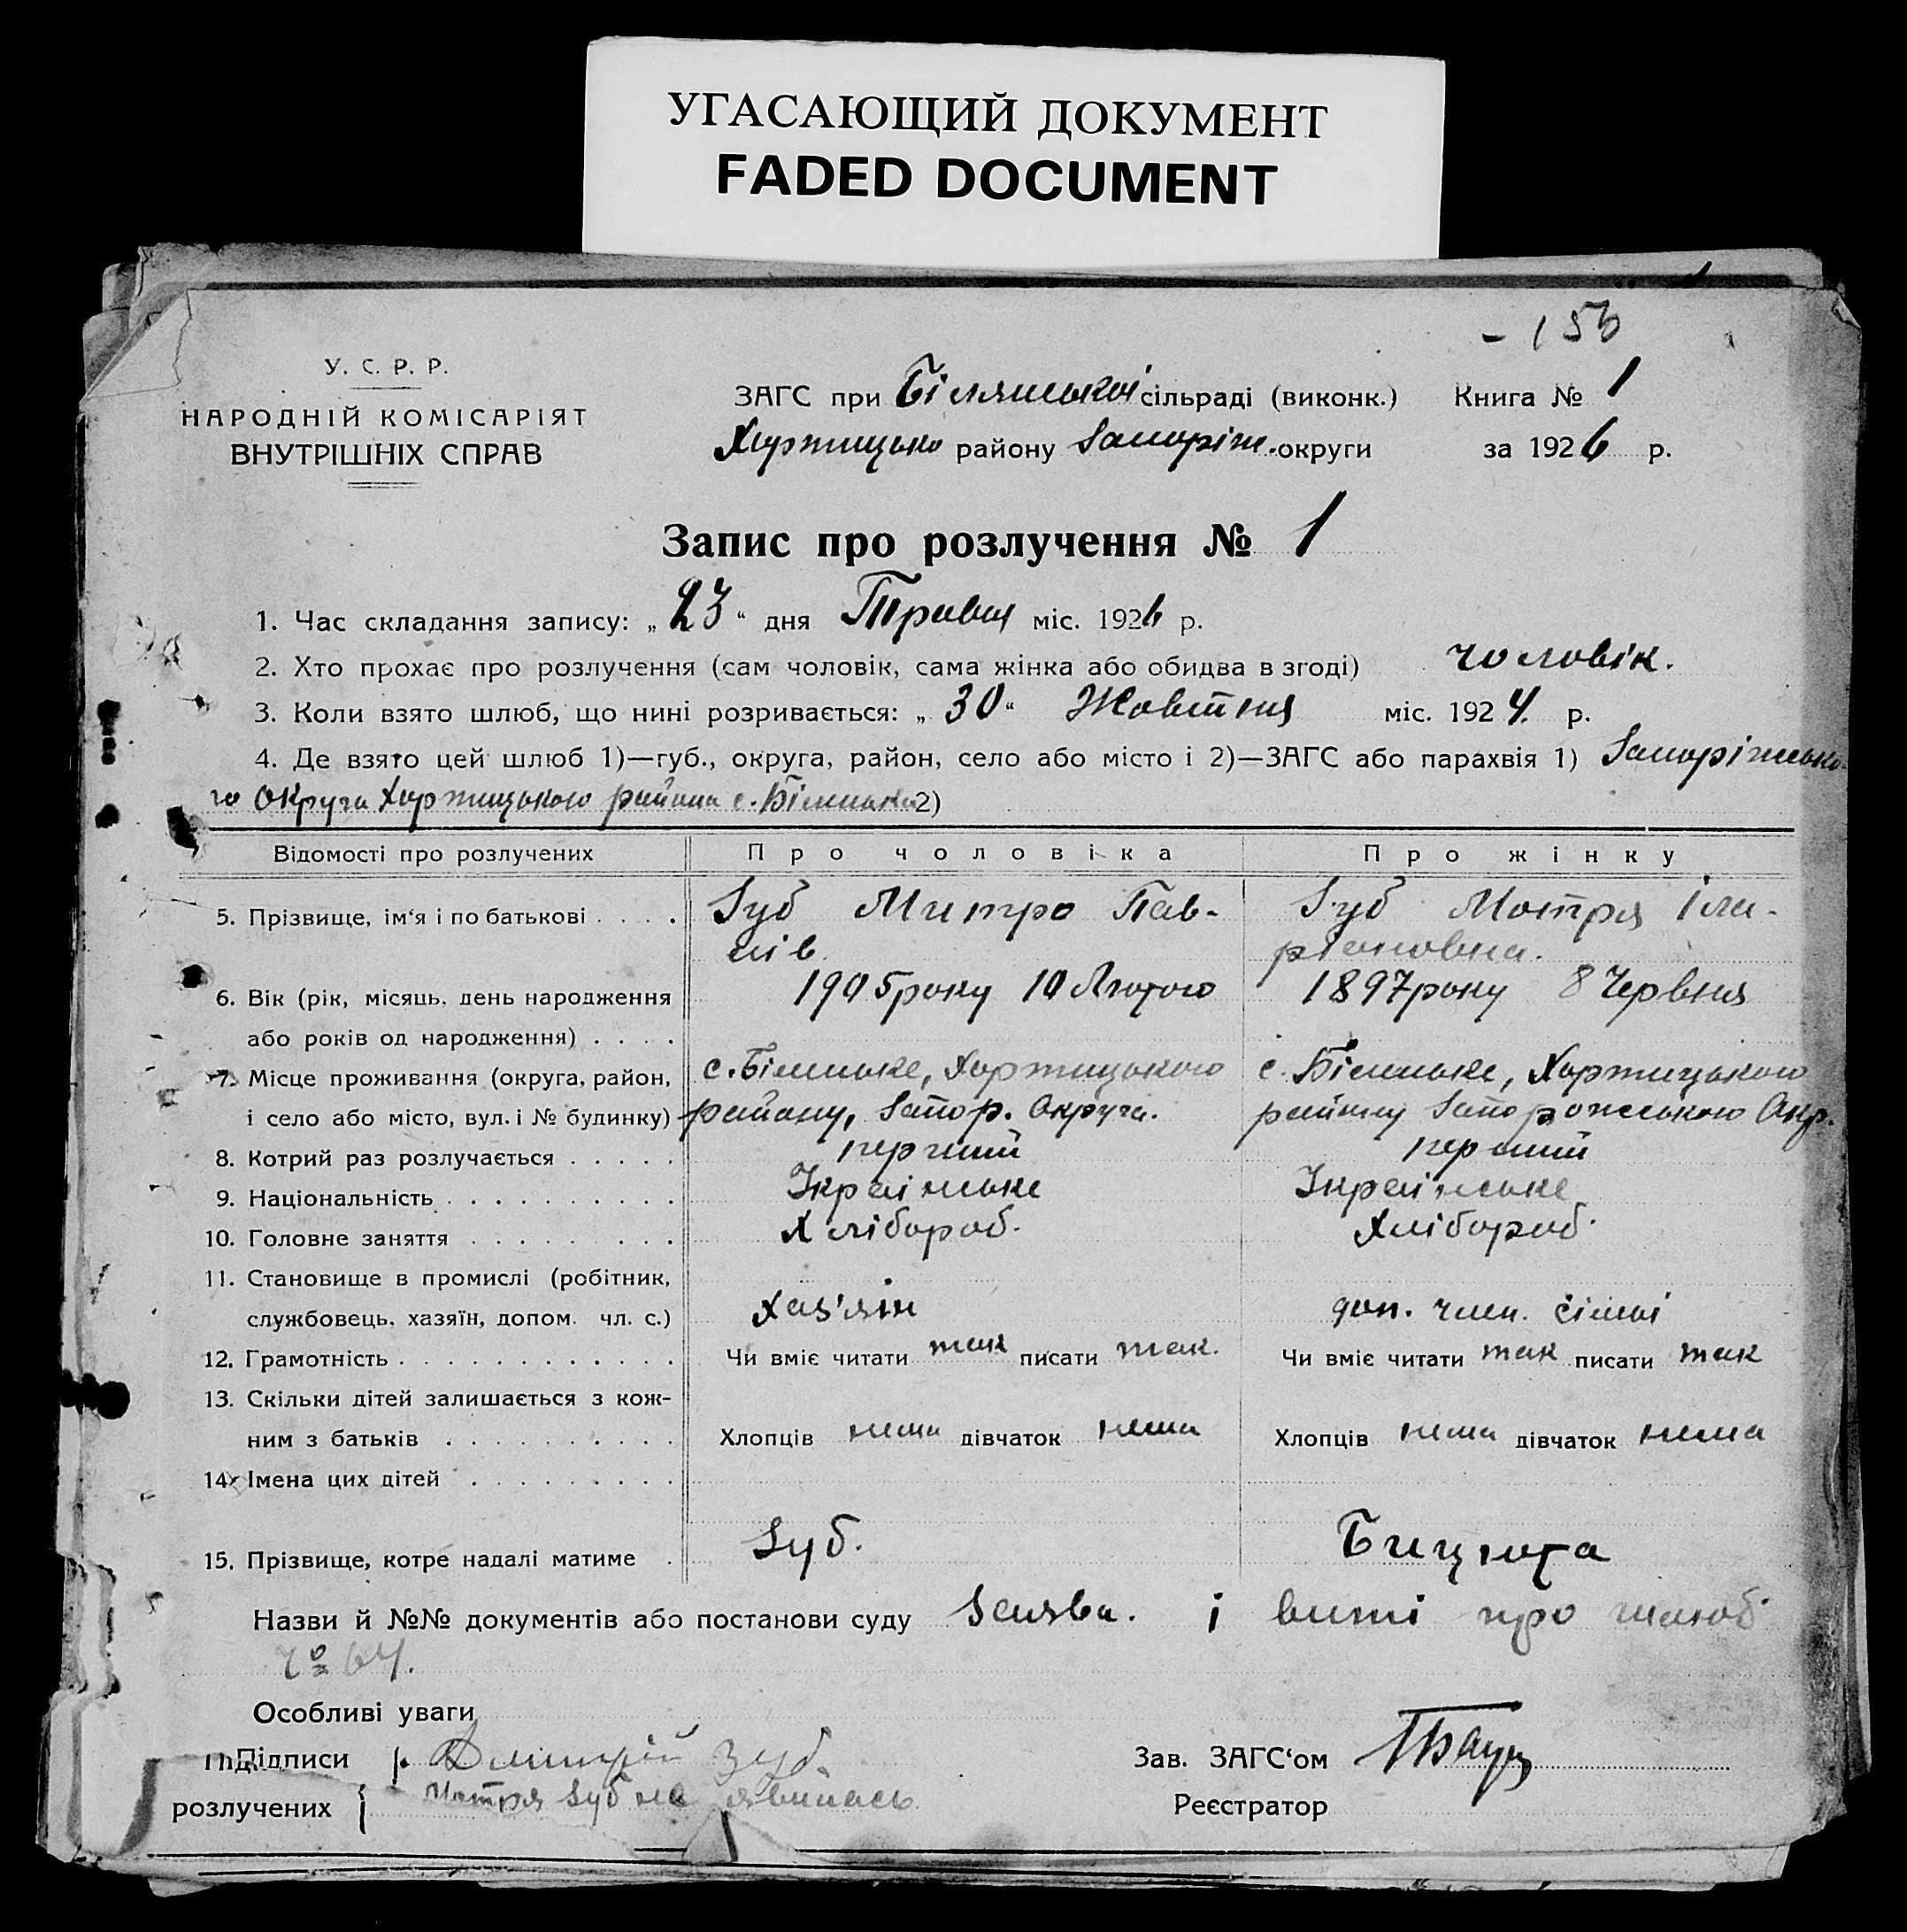 УГАСАЮЩИЙ ДОКУМЕНТ
FADED DOCUMENT
У. С. Р. Р.
НАРОДНІЙ КОМІСАРІЯТ
ВНУТРІШНІХ СПРАВ
ЗАГС при Біляньскої сільраді (виконк.)
Хортицько району Запоріж. округи
Книга № 1
за 1926 р.
Запис про розлучення № 1
1. Час складання запису: „ 23 “ дня Травня міс. 1926 р.
2. Хто прохає про розлучення (сам чоловік, сама жінка або обидва в згоді) чоловік.
3. Коли взято шлюб, що нині розривається: „ 30 “ Жовтня міс. 1924 р.
4. Де взято цей шлюб 1)—губ., округа, район, село або місто і 2)—ЗАГС або парахвія 1) Запоріжсько-
го Округа Хортицького района с. 2)
Відомості про розлучених Про чоловіка Про жінку
5. Прізвище, ім‘я і по батькові . . . . Зуб Митро Пав- Зуб Мотря Іла-
лів ріоновна.
6. Вік (рік, місяць, день народження 1905 року 10 Лютого 1897 року 8 Червня
або років од народження) . . . .
7. Місце проживання (округа, район, с. Біленьке, Хортицького с. Біленьке, Хортицького
і село або місто, вул. і № будинку) району, Запор. Округи. району Запорожського Окр.
8. Котрий раз розлучається . . . . . перший перший
9. Національність . . . . . . . . . . Українське Українське
10. Головне заняття . . . . . . . . . Хлібороб. Хлібороб.
11. Становище в промислі (робітник,
службовець, хазяїн, допом. чл. с.) Хаз'яїн доп. член. сімьі
12. Грамотність . . . . . . . . . . . . Чи вміє читати так писати так. Чи вміє читати так писати так
13. Скільки дітей залишається з кож-
ним з батьків . . . . . . . . . . Хлопців нема дівчаток нема Хлопців нема дівчаток нема
14. Імена цих дітей . . . . . . . . .
15. Прізвище, котре надалі матиме . Зуб. Бицюта
Назви й №№ документів або постанови суду Заява. і виті про шлюб
64.
Особливі уваги
Підписи Дмитрій Зуб. Зав. ЗАГС‘ом
розлучених Мотря Зуб не явилась Реєстратор